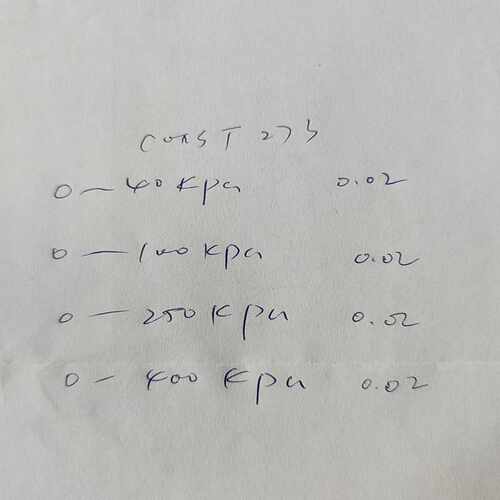 ConST 273
0 — 40 Kpa 0.02
0 — 100 Kpa 0.02
0 — 250 Kpa 0.02
0 — 400 Kpa 0.02